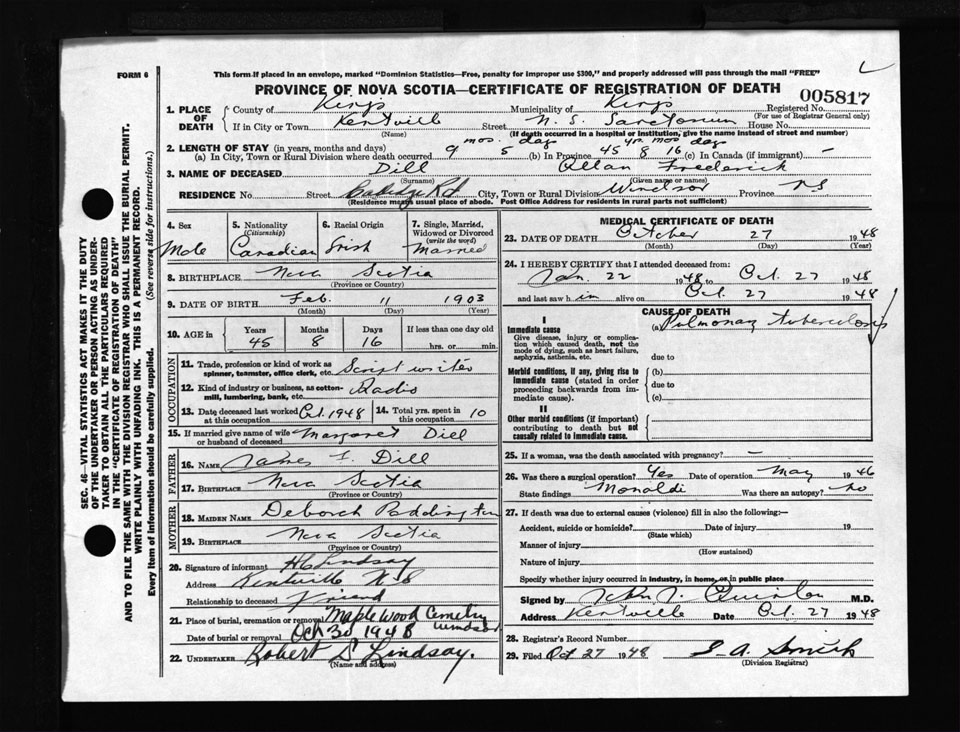 FORM 6
This form if placed in an envelope, marked "Dominion Statistics—Free, penalty for improper use $300," and properly addressed will pass through the mail "FREE"
PROVINCE OF NOVA SCOTIA—CERTIFICATE OF REGISTRATION OF DEATH
005817
1. PLACE OF DEATH County of Kings Municipality of Kings Registered No.
(For use of Registrar General only)
If in City or Town Kentville Street N. S. Sanatorium House No.
(Name) (If death occurred in a hospital or institution, give the name instead of street and number)
2. LENGTH OF STAY (in years, months and days)
(a) In City, Town or Rural Division where death occurred 9 mos. 5 days (b) In Province 45 yrs 8 mos 16 days (c) In Canada (if immigrant) -
3. NAME OF DECEASED Dill Allan Frederick
(Surname) (Given name or names)
RESIDENCE No. Street Rd City, Town or Rural Division Windsor Province NS
(Residence means usual place of abode. Post Office Address for residents in rural parts not sufficient)
4. Sex Male
5. Nationality (Citizenship) Canadian
6. Racial Origin Irish
7. Single, Married, Widowed or Divorced (write the word) Married
8. BIRTHPLACE Nova Scotia
(Province or Country)
9. DATE OF BIRTH Feb. 11 1903
(Month) (Day) (Year)
10. AGE in Years 45 Months 8 Days 16 If less than one day old hrs. or min.
OCCUPATION
11. Trade, profession or kind of work as spinner, teamster, office clerk, etc. Script writer
12. Kind of industry or business, as cotton-mill, lumbering, bank, etc. Radio
13. Date deceased last worked at this occupation Oct. 1948
14. Total yrs. spent in this occupation 10
15. If married give name of wife or husband of deceased Margaret Dill
FATHER
16. NAME James F. Dill
17. BIRTHPLACE Nova Scotia
(Province or Country)
MOTHER
18. MAIDEN NAME Deborah Paddington
19. BIRTHPLACE Nova Scotia
(Province or Country)
20. Signature of informant H C Lindsay
Address Kentville N S
Relationship to deceased Friend
21. Place of burial, cremation or removal Maplewood Cemetery Windsor
Date of burial or removal Oct 30 1948
22. UNDERTAKER Robert S Lindsay.
(Name and address)
MEDICAL CERTIFICATE OF DEATH
23. DATE OF DEATH October 27 1948
(Month) (Day) (Year)
24. I HEREBY CERTIFY that I attended deceased from:
Jan. 22 1948 to Oct. 27 1948
and last saw him alive on Oct. 27 1948
CAUSE OF DEATH
I
Immediate cause
Give disease, injury or complication which caused death, not the mode of dying, such as heart failure, asphyxia, asthenia, etc.
(a) Pulmonary tuberculosis
due to
Morbid conditions, if any, giving rise to immediate cause (stated in order proceeding backwards from immediate cause)
(b)
due to
(c)
II
Other morbid conditions (if important) contributing to death but not causally related to immediate cause.
25. If a woman, was the death associated with pregnancy? -
26. Was there a surgical operation? Yes Date of operation May 1946
State findings Monaldi Was there an autopsy? no
27. If death was due to external causes (violence) fill in also the following:—
Accident, suicide or homicide? Date of injury 19
(State which)
Manner of injury
(How sustained)
Nature of injury
Specify whether injury occurred in industry, in home, or in public place
Signed by John J. Quinlan M.D.
Address Kentville Date Oct. 27 1948
28. Registrar's Record Number
29. Filed Oct 27 1948 Smith
(Division Registrar)
SEC. 46—VITAL STATISTICS ACT MAKES IT THE DUTY
OF THE UNDERTAKER OR PERSON ACTING AS UNDER-
TAKER TO OBTAIN ALL THE PARTICULARS REQUIRED
IN THE "CERTIFICATE OF REGISTRATION OF DEATH"
AND TO FILE THE SAME WITH THE DIVISION REGISTRAR WHO SHALL ISSUE THE BURIAL PERMIT.
WRITE PLAINLY WITH UNFADING INK. THIS IS A PERMANENT RECORD.
Every item of information should be carefully supplied. (See reverse side for instructions.)